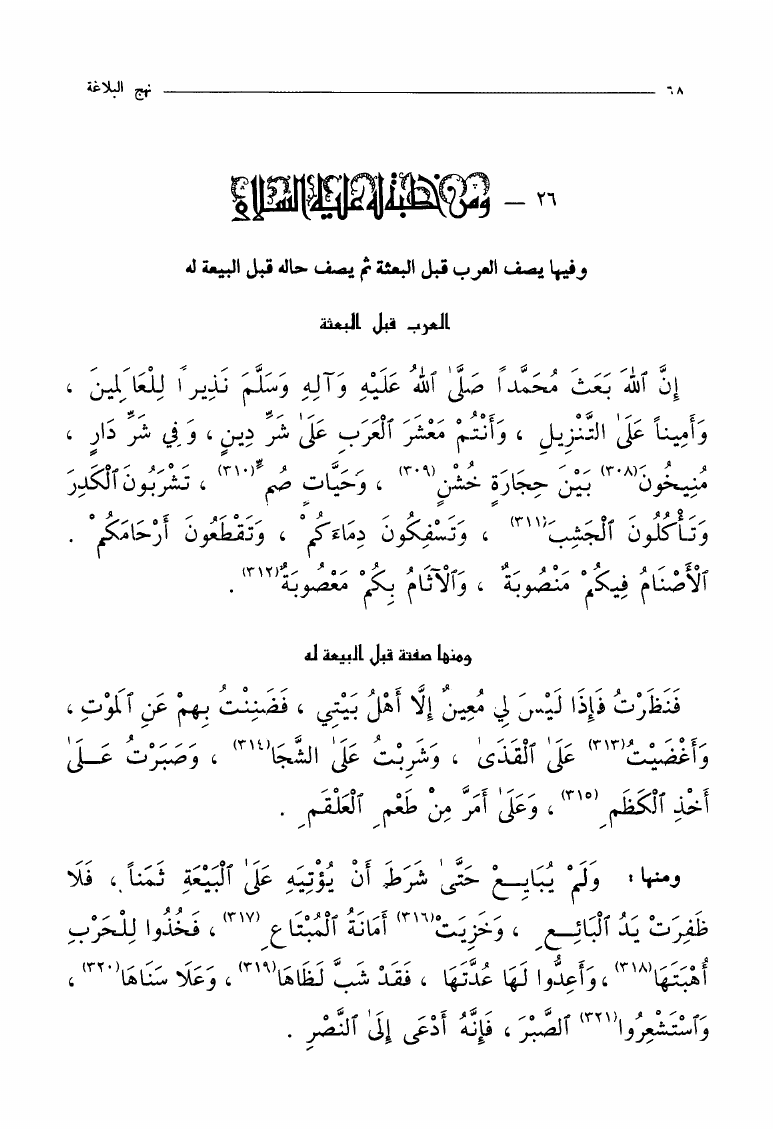 ٦٨ نهج البلاغة
٢٦ – ومن خطبة له عليه السلام
وفيها يصف العرب قبل البعثة ثم يصف حاله قبل البيعة له
العرب قبل البعثة
إِنَّ ٱللهَ بَعَثَ مُحَمَّداً صَلَّىٰ ٱللهُ عَلَيْهِ وَآلِهِ وَسَلَّمَ نَذِيراً لِلْعَالَمِينَ ،
وَأَمِيناً عَلَىٰ التَّنْزِيلِ ، وَأَنْتُمْ مَعْشَرَ ٱلْعَرَبِ عَلَىٰ شَرِّ دِينٍ ، وَفِي شَرِّ دَارٍ ،
مُنِيخُونَ(٣٠٨) بَيْنَ حِجَارَةٍ خُشْنٍ(٣٠٩) ، وَحَيَّاتٍ صُمٍّ(٣١٠) ، تَشْرَبُونَ ٱلْكَدِرَ
وَتَأْكُلُونَ ٱلْجَشِبَ(٣١١) ، وَتَسْفِكُونَ دِمَاءَكُمْ ، وَتَقْطَعُونَ أَرْحَامَكُمْ .
ٱلْأَصْنَامُ فِيكُمْ مَنْصُوبَةٌ ، وَٱلْآثَامُ بِكُمْ مَعْصُوبَةٌ(٣١٢) .
ومنها صفته قبل البيعة له
فَنَظَرْتُ فَإِذَا لَيْسَ لِي مُعِينٌ إِلَّا أَهْلُ بَيْتِي ، فَضَنِنْتُ بِهِمْ عَنِ ٱلمَوْتِ ،
وَأَغْضَيْتُ(٣١٣) عَلَىٰ ٱلْقَذَىٰ ، وَشَرِبْتُ عَلَىٰ الشَّجَا(٣١٤) ، وَصَبَرْتُ عَــلَىٰ
أَخْذِ ٱلْكَظَمِ(٣١٥) ، وَعَلَىٰ أَمَرَّ مِنْ طَعْمِ ٱلْعَلْقَمِ .
ومنها : وَلَمْ يُبَايِــعْ حَتَّىٰ شَرَطَ أَنْ يُؤْتِيَهِ عَلَىٰ ٱلْبَيْعَةِ ثَمَناً ، فَلَا
ظَفِرَتْ يَدُ ٱلْبَائِــعِ ، وَخَزِيَتْ(٣١٦) أَمَانَةُ ٱلْمُبْتَاعِ(٣١٧) ، فَخُذُوا لِلْحَرْبِ
أُهْبَتَهَا(٣١٨) ، وَأَعِدُّوا لَهَا عُدَّتَهَا ، فَقَدْ شَبَّ لَظَاهَا(٣١٩) ، وَعَلَا سَنَاهَا(٣٢٠) ،
وَٱسْتَشْعِرُوا(٣٢١) ٱلصَّبْرَ ، فَإِنَّهُ أَدْعَى إِلَىٰ ٱلنَّصْرِ .